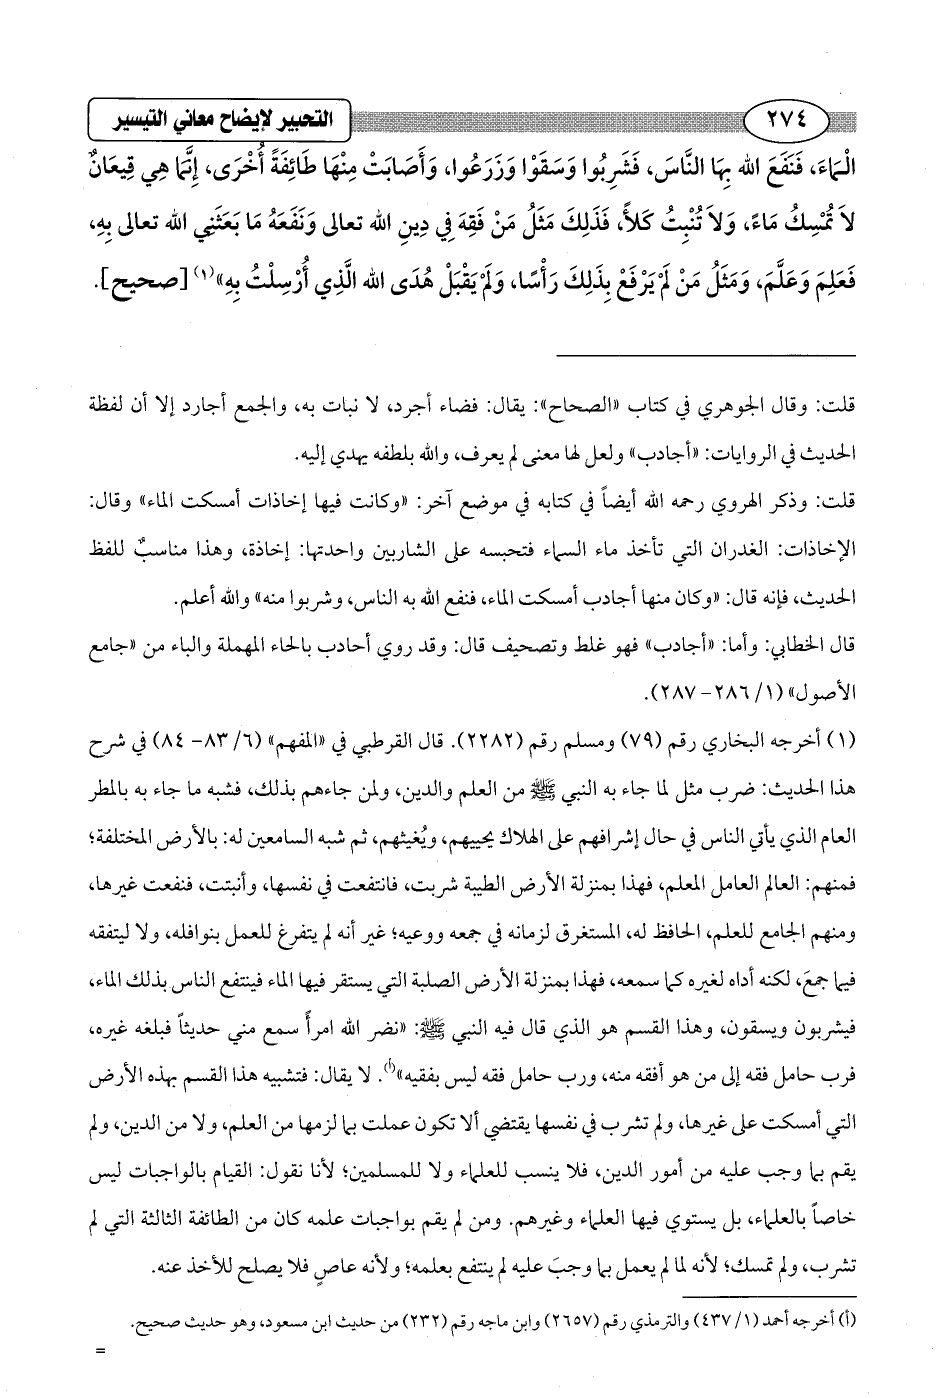 ٢٧٤
التحبير لإيضاح معاني التيسير
الْمَاءَ، فَنَفَعَ الله بِهَا النَّاسَ، فَشَرِبُوا وَسَقَوْا وَزَرَعُوا، وَأَصَابَتْ مِنْهَا طَائِفَةً أُخْرَى، إِنَّمَا هِي قِيعَانٌ
لاَ تُمْسِكُ مَاءً، وَلاَ تُنْبِتُ كَلأً، فَذَلِكَ مَثَلُ مَنْ فَقِهَ فِي دِينِ الله تعالى وَنَفَعَهُ مَا بَعَثَنِي الله تعالى بِهِ،
فَعَلِمَ وَعَلَّمَ، وَمَثَلُ مَنْ لَمْ يَرْفَعْ بِذَلِكَ رَأْسًا، وَلَمْ يَقْبَلْ هُدَى الله الَّذِي أُرْسِلْتُ بِهِ»(١) [صحيح].
قلت: وقال الجوهري في كتاب «الصحاح»: يقال: فضاء أجرد، لا نبات به، والجمع أجارد إلا أن لفظة
الحديث في الروايات: «أجادب» ولعل لها معنى لم يعرف، والله بلطفه يهدي إليه.
قلت: وذكر الهروي رحمه الله أيضاً في كتابه في موضع آخر: «وكانت فيها إخاذات أمسكت الماء» وقال:
الإخاذات: الغدران التي تأخذ ماء السماء فتحبسه على الشاربين واحدتها: إخاذة، وهذا مناسبٌ للفظ
الحديث، فإنه قال: «وكان منها أجادب أمسكت الماء، فنفع الله به الناس، وشربوا منه» والله أعلم.
قال الخطابي: وأما: «أجادب» فهو غلط وتصحيف قال: وقد روي أحادب بالحاء المهملة والباء من «جامع
الأصول» (١/ ٢٨٦- ٢٨٧).
(١) أخرجه البخاري رقم (٧٩) ومسلم رقم (٢٢٨٢). قال القرطبي في «المفهم» (٦/ ٨٣- ٨٤) في شرح
هذا الحديث: ضرب مثل لما جاء به النبي ﷺ من العلم والدين، ولمن جاءهم بذلك، فشبه ما جاء به بالمطر
العام الذي يأتي الناس في حال إشرافهم على الهلاك يحييهم، ويُغيثهم، ثم شبه السامعين له: بالأرض المختلفة؛
فمنهم: العالم العامل المعلم، فهذا بمنزلة الأرض الطيبة شربت، فانتفعت في نفسها، وأنبتت، فنفعت غيرها،
ومنهم الجامع للعلم، الحافظ له، المستغرق لزمانه في جمعه ووعيه؛ غير أنه لم يتفرغ للعمل بنوافله، ولا ليتفقه
فيما جمعَ، لكنه أداه لغيره كما سمعه، فهذا بمنزلة الأرض الصلبة التي يستقر فيها الماء فينتفع الناس بذلك الماء،
فيشربون ويسقون، وهذا القسم هو الذي قال فيه النبي ﷺ: «نضر الله امرأً سمع مني حديثاً فبلغه غيره،
فرب حامل فقه إلى من هو أفقه منه، ورب حامل فقه ليس بفقيه»(أ). لا يقال: فتشبيه هذا القسم بهذه الأرض
التي أمسكت على غيرها، ولم تشرب في نفسها يقتضي ألا تكون عملت بما لزمها من العلم، ولا من الدين، ولم
يقم بما وجب عليه من أمور الدين، فلا ينسب للعلماء ولا للمسلمين؛ لأنا نقول: القيام بالواجبات ليس
خاصاً بالعلماء، بل يستوي فيها العلماء وغيرهم. ومن لم يقم بواجبات علمه كان من الطائفة الثالثة التي لم
تشرب، ولم تمسك؛ لأنه لما لم يعمل بما وجبَ عليه لم ينتفع بعلمه؛ ولأنه عاصٍ فلا يصلح للأخذ عنه.
(أ) أخرجه أحمد (١/ ٤٣٧) والترمذي رقم (٢٦٥٧) وابن ماجه رقم (٢٣٢) من حديث ابن مسعود، وهو حديث صحيح.
=